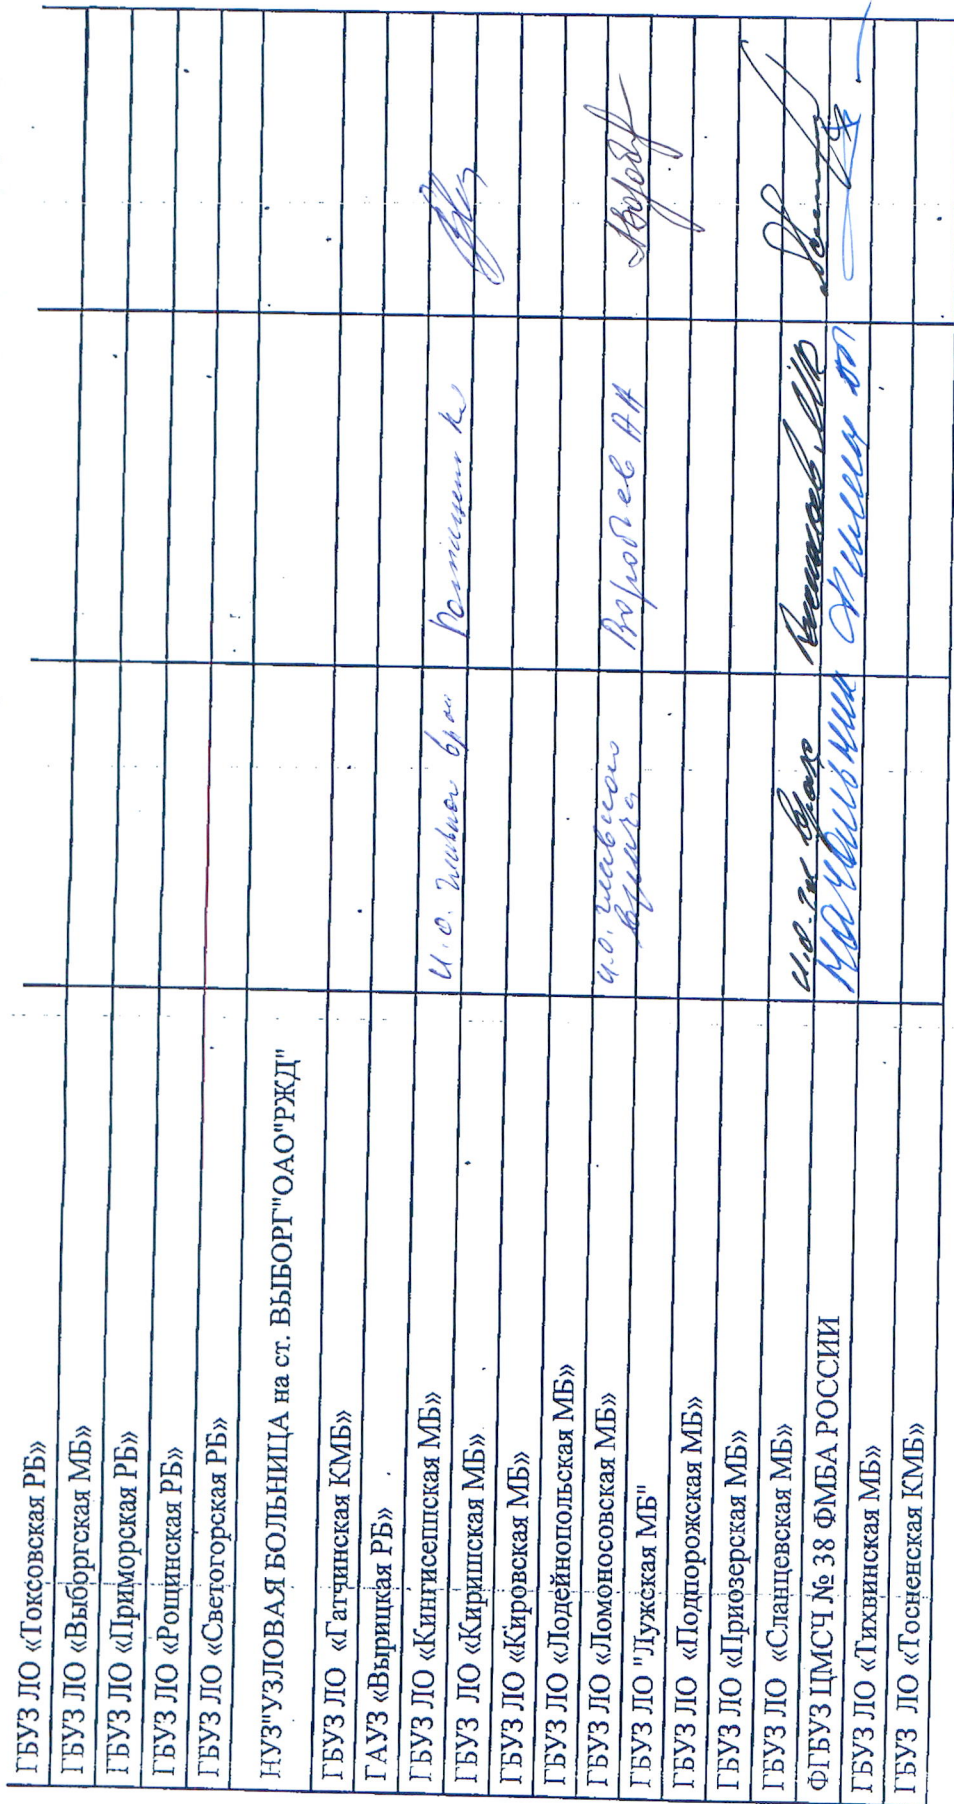 ГБУЗ ЛО «Токсовская РБ»
ГБУЗ ЛО «Выборгская МБ»
ГБУЗ ЛО «Приморская РБ»
ГБУЗ ЛО «Рощинская РБ»
ГБУЗ ЛО «Светогорская РБ»
НУЗ"УЗЛОВАЯ БОЛЬНИЦА на ст. ВЫБОРГ"ОАО"РЖД"
ГБУЗ ЛО «Гатчинская КМБ»
ГАУЗ «Вырицкая РБ»
ГБУЗ ЛО «Кингисеппская МБ» и.о. главного врач
ГБУЗ ЛО «Киришская МБ»
ГБУЗ ЛО «Кировская МБ»
ГБУЗ ЛО «Лодейнопольская МБ»
ГБУЗ ЛО «Ломоносовская МБ» и.о. главного врача Воробьев АН
ГБУЗ ЛО "Лужская МБ"
ГБУЗ ЛО «Подпорожская МБ»
ГБУЗ ЛО «Приозерская МБ»
ГБУЗ ЛО «Сланцевская МБ» и.о. гл врача
ФГБУЗ ЦМСЧ № 38 ФМБА РОССИИ начальник
ГБУЗ ЛО «Тихвинская МБ»
ГБУЗ ЛО «Тосненская КМБ»